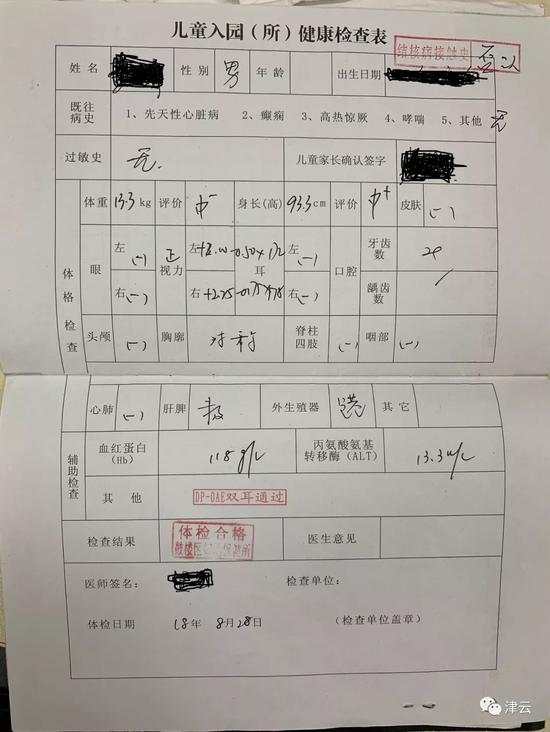 儿童入园（所）健康检查表
结核病接触史 否认
姓名 性别 男 年龄 出生日期
既往病史 1、先天性心脏病 2、癫痫 3、高热惊厥 4、哮喘 5、其他 无
过敏史 无 儿童家长确认签字
体格检查
体重 13.3 kg 评价 中- 身长(高) 93.3 cm 评价 中+ 皮肤 (-)
眼 左 (-) 视力 左 耳 左 (-) 口腔 牙齿数
右 (-) 右 +2.25 右 (-) 龋齿数 /
头颅 (-) 胸廓 对称 脊柱四肢 (-) 咽部 (-)
心肺 (-) 肝脾 外生殖器 其它
辅助检查
血红蛋白(Hb) 118 g/L 丙氨酸氨基转移酶(ALT) 13.3 u/L
其他 DP-OAE双耳通过
检查结果 体检合格 医生意见
医师签名： 检查单位：
体检日期 18年 8月28日 (检查单位盖章)
津云